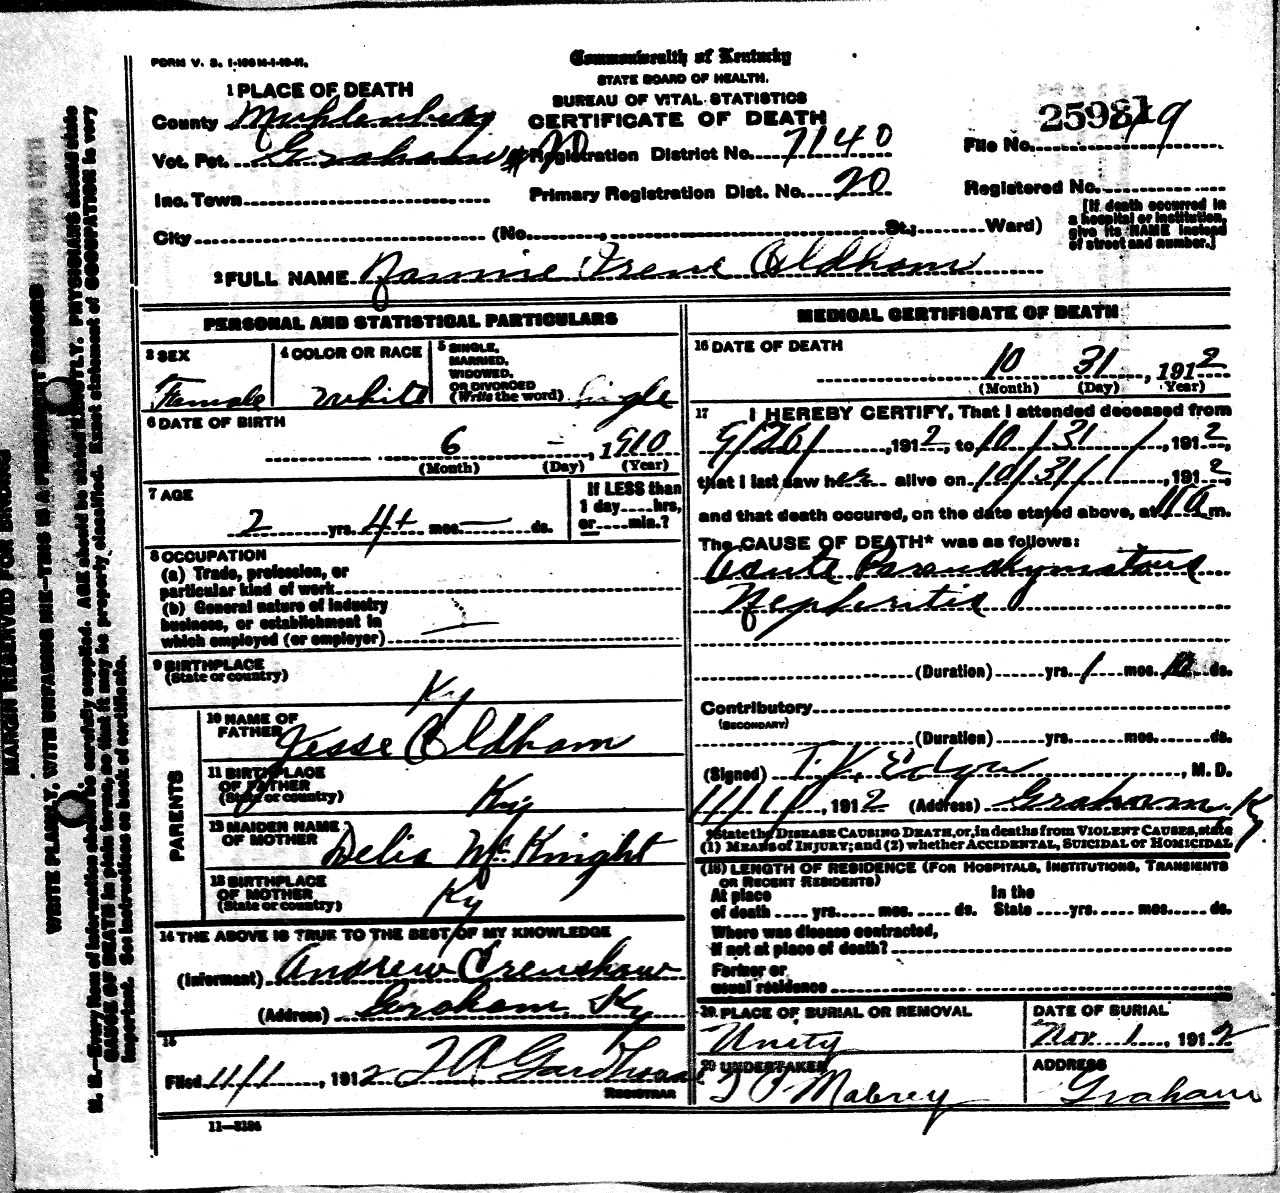 FORM V. S. 1-
Commonwealth of Kentucky
STATE BOARD OF HEALTH.
BUREAU OF VITAL STATISTICS
CERTIFICATE OF DEATH
1 PLACE OF DEATH
County Muhlenberg
Vot. Pct. Graham #20
Registration District No. 7140
File No. 25981
Inc. Town
Primary Registration Dist. No. 20
Registered No.
City (No. , St.; Ward)
[If death occurred in
a hospital or institution,
give its NAME instead
of street and number.]
2 FULL NAME Nannie Irene Oldham
PERSONAL AND STATISTICAL PARTICULARS
3 SEX
Female
4 COLOR OR RACE
White
5 SINGLE,
MARRIED,
WIDOWED,
OR DIVORCED
(Write the word) Single
6 DATE OF BIRTH
6 - , 1910
(Month) (Day) (Year)
7 AGE
2 yrs. 4+ mos. — ds.
If LESS than
1 day....hrs,
or.....min.?
8 OCCUPATION
(a) Trade, profession, or
particular kind of work
(b) General nature of industry
business, or establishment in
which employed (or employer)
9 BIRTHPLACE
(State or country)
Ky
PARENTS
10 NAME OF
FATHER
Jesse Oldham
11 BIRTHPLACE
OF FATHER
(State or country)
Ky
12 MAIDEN NAME
OF MOTHER
Delia McKnight
13 BIRTHPLACE
OF MOTHER
(State or country)
Ky
14 THE ABOVE IS TRUE TO THE BEST OF MY KNOWLEDGE
(Informant) Andrew Crenshaw
(Address) Graham, Ky
15
Filed 11/1 , 1912
REGISTRAR
11—3184
MEDICAL CERTIFICATE OF DEATH
16 DATE OF DEATH
10 31 , 1912
(Month) (Day) (Year)
17 I HEREBY CERTIFY, That I attended deceased from
9/26/ , 1912, to 10/31/ , 1912,
that I last saw her alive on 10/31/ , 1912,
and that death occured, on the date stated above, at 11 a m.
The CAUSE OF DEATH* was as follows:
Acute Parenchymatous
Nephritis
(Duration) yrs. 1 mos. ds.
Contributory
(SECONDARY)
(Duration) yrs. mos. ds.
(Signed) T. K. , M. D.
11/1/ , 1912 (Address) Graham Ky
*State the DISEASE CAUSING DEATH, or, in deaths from VIOLENT CAUSES, state
(1) MEANS of INJURY; and (2) whether ACCIDENTAL, SUICIDAL or HOMICIDAL
(18) LENGTH OF RESIDENCE (FOR HOSPITALS, INSTITUTIONS, TRANSIENTS
OR RECENT RESIDENTS)
At place In the
of death .... yrs..... mos..... ds. State ....yrs..... mos..... ds.
Where was disease contracted,
if not at place of death?
Former or
usual residence
19. PLACE OF BURIAL OR REMOVAL
Unity
DATE OF BURIAL
Nov. 1 , 1912
20 UNDERTAKER
Mabrey
ADDRESS
Graham
MARGIN RESERVED FOR BINDING
WRITE PLAINLY, WITH UNFADING INK—THIS IS A PERMANENT RECORD
N. B.—Every item of information should be carefully supplied. AGE should be stated EXACTLY. PHYSICIANS should state
CAUSE OF DEATH in plain terms, so that it may be properly classified. Exact statement of OCCUPATION is very
important. See instructions on back of certificate.